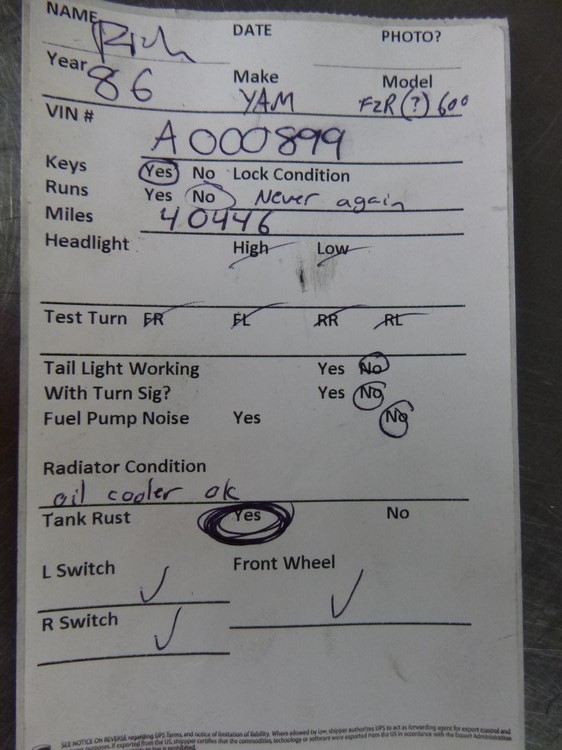 NAME Rich DATE PHOTO?
Year 86 Make YAM Model FZR (?) 600
VIN # A000899
Keys Yes No Lock Condition
Runs Yes No Never again
Miles 40446
Headlight High Low
Test Turn FR FL RR RL
Tail Light Working Yes No
With Turn Sig? Yes No
Fuel Pump Noise Yes No
Radiator Condition
oil cooler ok
Tank Rust Yes No
L Switch ✓ Front Wheel ✓
R Switch ✓
SEE NOTICE ON REVERSE regarding UPS Terms, and notice of limitation of liability. Where allowed by law, shipper authorizes UPS to act as forwarding agent for export control and
customs purposes. If exported from the US, shipper certifies that the commodities, technology or software were exported from the US in accordance with the Export Administration